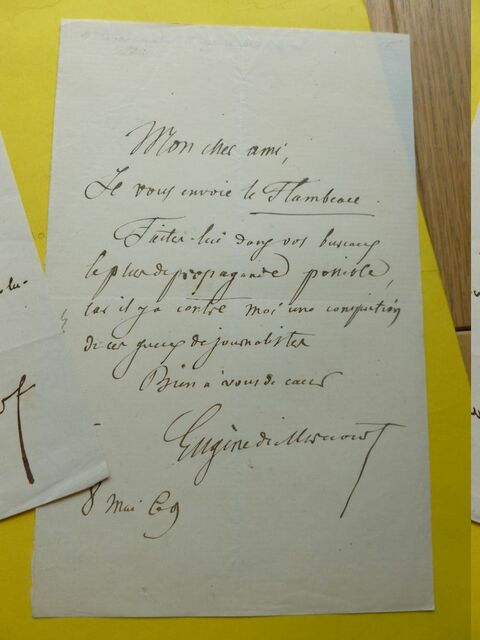 Mon cher ami,
Je vous envoie le Flambeau.
Faites-lui dans vos bureaux
le plus de propagande possible,
car il y a contre moi une conspiration
de ces gueux de journalistes
Bien à vous de cœur
Eugène de Mirecourt
8 Mai